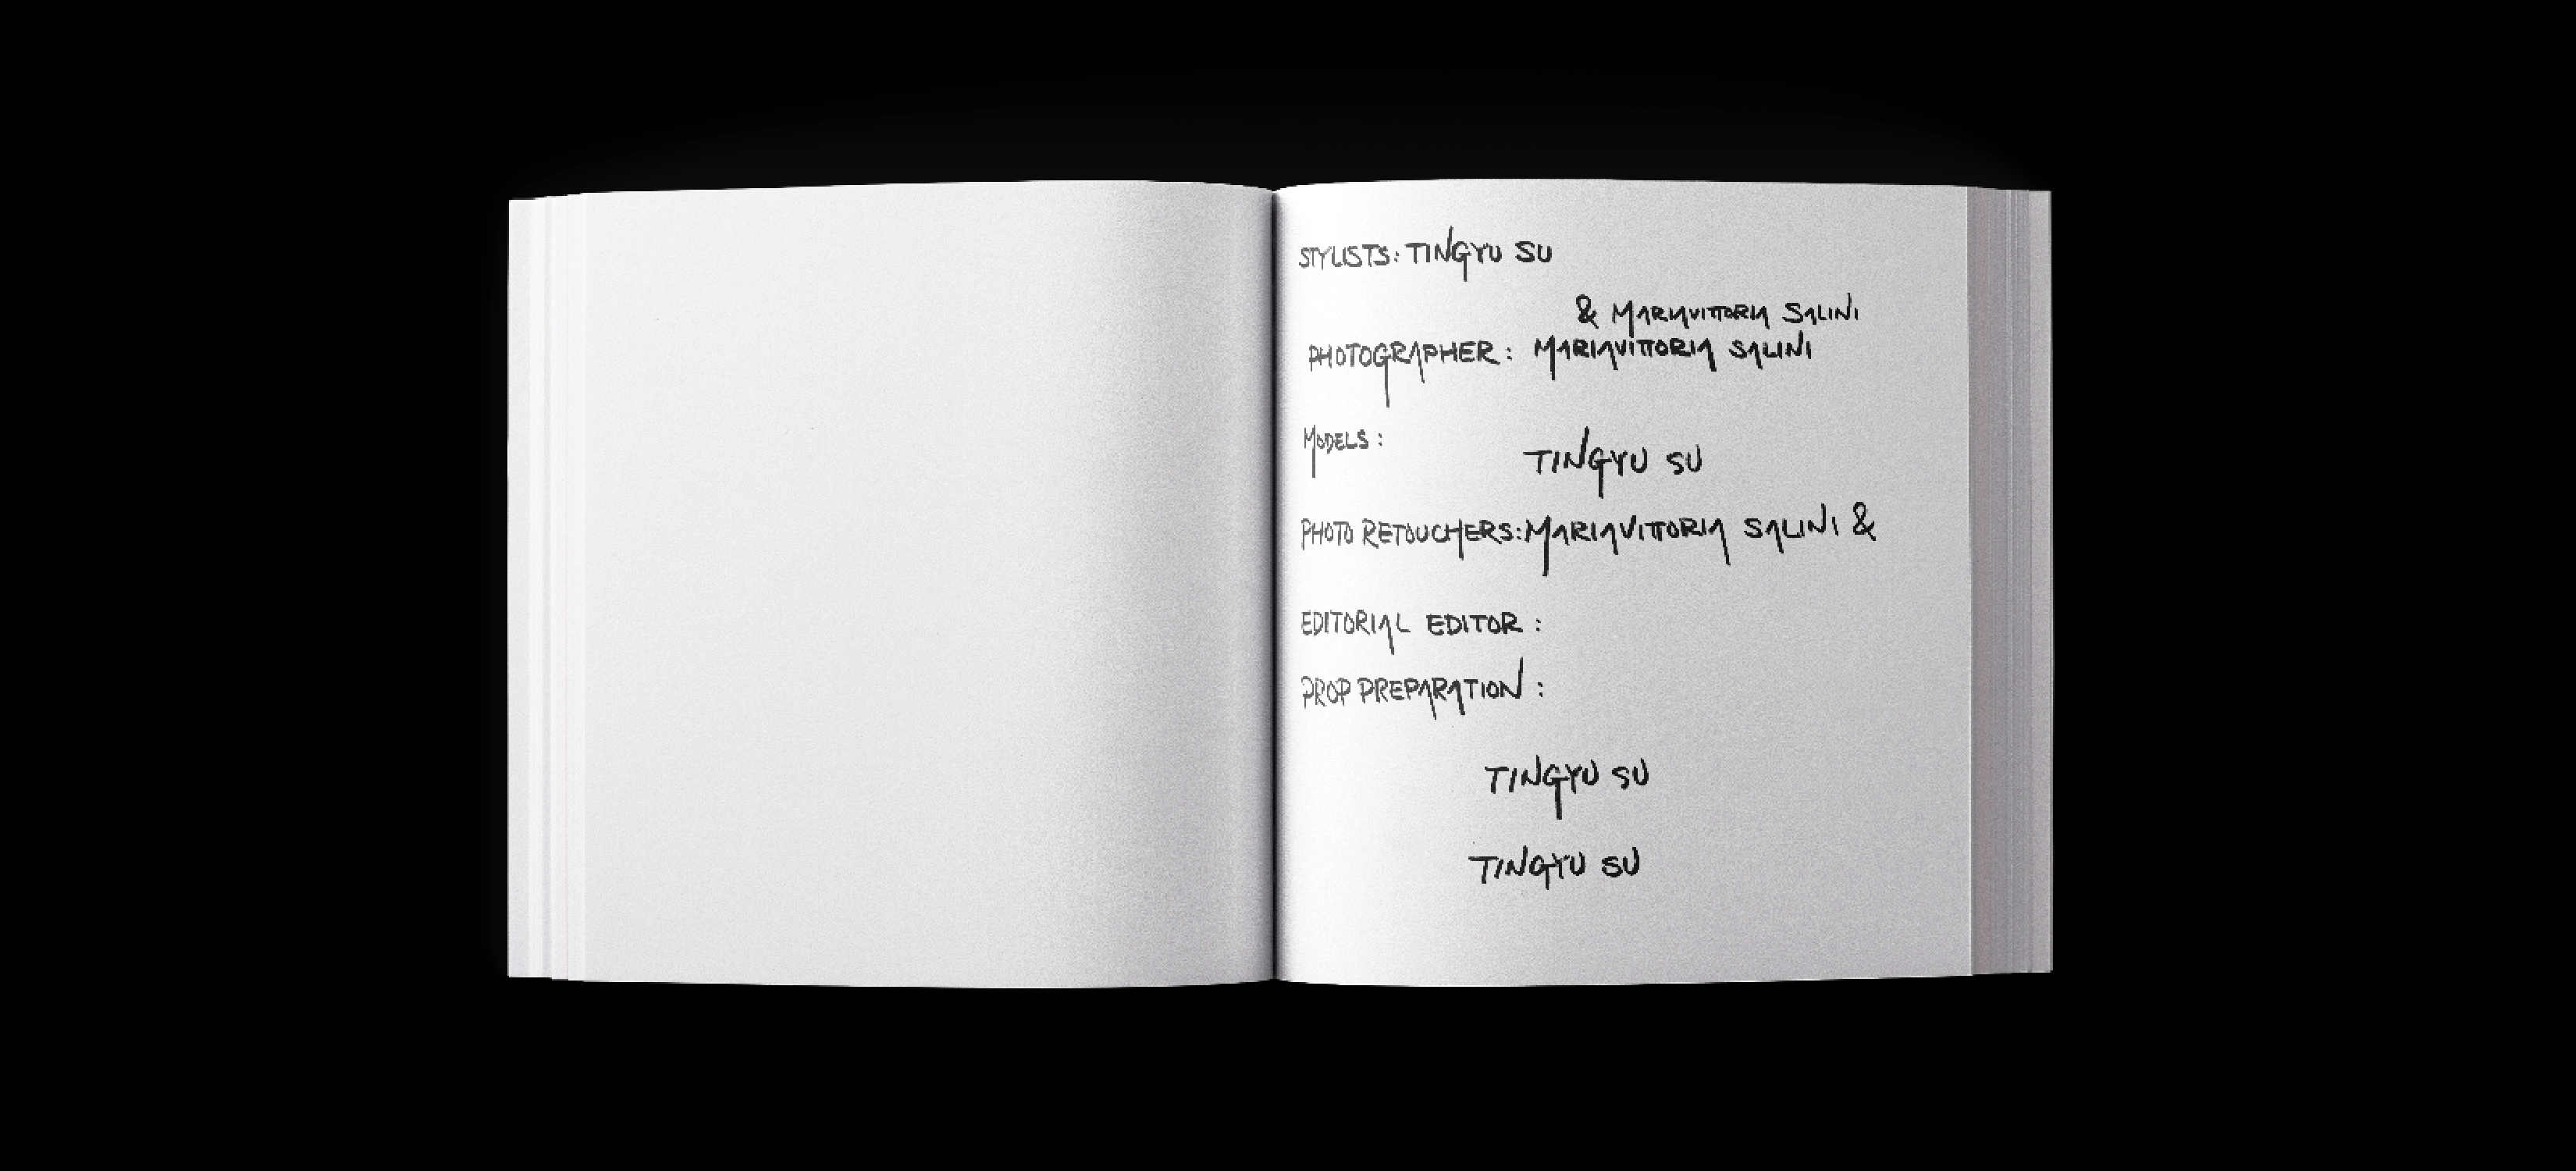 STYLISTS: TINGYU SU
& MARIAVITTORIA SALINI
PHOTOGRAPHER: MARIAVITTORIA SALINI
MODELS:
TINGYU SU
PHOTO RETOUCHERS: MARIAVITTORIA SALINI &
EDITORIAL EDITOR:
PROP PREPARATION:
TINGYU SU
TINGYU SU